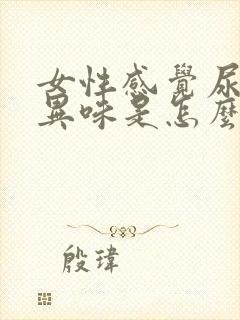 女性感覺尿
異味是怎麼
殷瑋